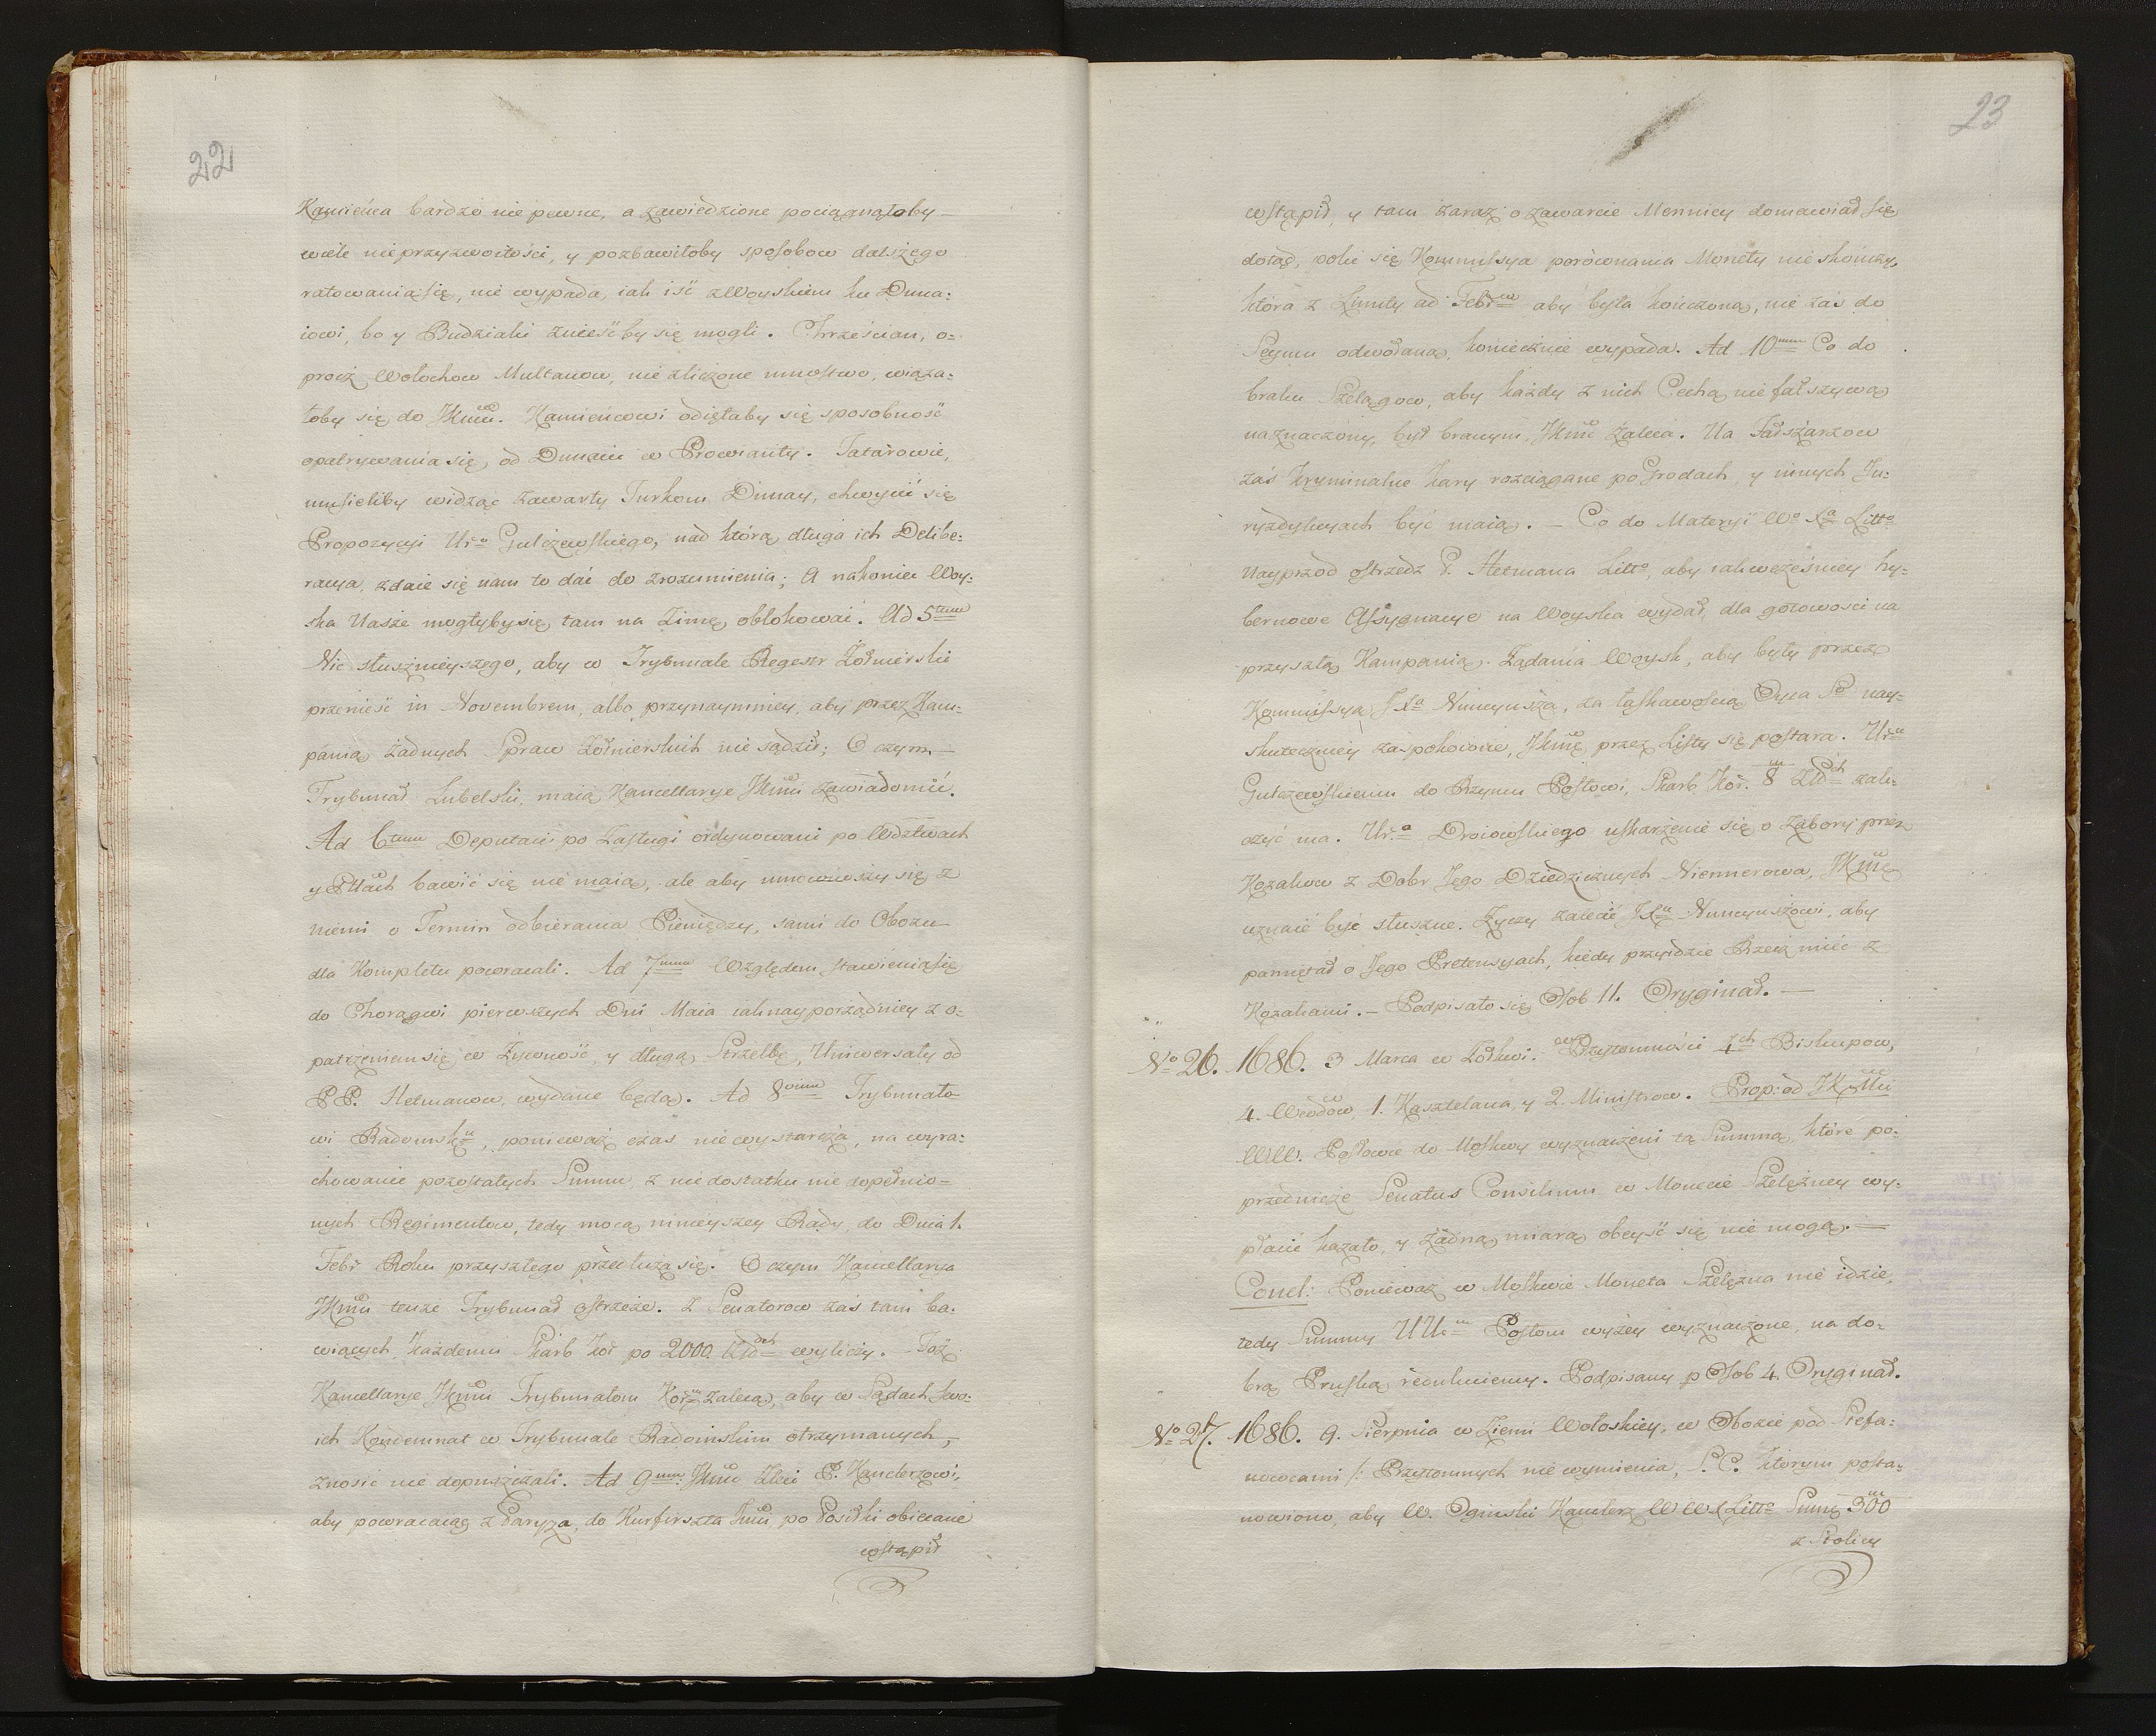 22
Kamieńca bardzo nie pewne, a zawiedzione pociągnąłoby
wiele nieprzyzwoitości, y pozbawiłoby sposobow dalszego
ratowania się, nie wypada, iak iść z Woyskiem ku Duna:
iowi, bo y Budziaki znieść by się mogli. Chrześcian, o-
procz Wołochow Multanow, nie zliczone mnostwo, wiąza:
łoby się do JKMci. Kamieńcowi odięłaby się sposobność
opatrywania się, od Dunaiu w Prowianty. Tatarowie,
musieliby widząc zawarty Turkom Dunay, chwycić się
Propozycyi Ur:o Gulczewskiego, nad którą długa ich Delibe:
racya, zdaie się nam to dać do zrozumienia; A nakoniec Woy:
ska Nasze mogłyby się tam na Zimę oblokować. Ad 5tum
Nic słusznieyszego, aby w Trybunale Regestr Żołnierski
przenieść in Novembrem, albo przynaymniey, aby przez Kam:
panią żadnych Spraw Żołnierskich nie sądził; O czym
Trybunał Lubelski, maią Kancellarye JKMci zawiadomić.
Ad 6tum Deputaci po Zasługi ordynowani po Wdztwach
y PWach bawić się nie maią, ale aby umowiwszy się z
niemi o Termin odbierania Pieniędzy, sami do Obozu
dla Kompletu powracali. Ad 7mum Względem stawienia się
do Chorągwi pierwszych Dni Maia iak nayporządniey z o-
patrzeniem się w Żywność, y długą Strzelbę, Uniwersały od
PP. Hetmanow, wydane będą. Ad 8vum Trybunało
wi Radomsk:u, ponieważ czas nie wystarcza, na wyra:
chowanie pozostałych Summ, z nie dostatku nie dopełnio-
nych Regimentow, tedy mocą ninieyszey Rady, do Dnia 1.
Febr Roku przyszłego przedłuża się. O czym Kancellarya
JKMci tenże Trybunał ostrzeże. Z Senatorow zaś tam ba:
wiących, każdemu Skarb Kor po 2000 wyliczy. Toż
Kancellarye JKMci Trybunałom Kor:m zalecą, aby w Sądach swo:
ich Kondemnat w Trybunale Radomskim otrzymanych,
znosić nie dopuszczali. Ad 9num JKMć Zleci P. Kanclerzowi,
aby powracaiąc z Paryża, do Kurfirszta JMci, po Posiłki obiecane
wstąpił
23
wstąpił, y tam zaraz o zawarcie Mennicy domawiał się
dotąd, poki się Kommissya porównania Monety nie skończy,
która z Limity ad Febr aby była kończona, nie zaś do
Seymu odwołana, koniecznie wypada. Ad 10mum Co do
braku Szelągow, aby każdy z nich Cechą nie fałszywą
naznaczony, był branym JKMć zaleca. Na Fałszarzow
zaś kryminalne kary rozciągane po Grodach, y innych Ju:
ryzdykcyach być maią. — Co do Materyi Wo Xa Litto
Nayprzod ostrzedz P. Hetmana Litto, aby iak wcześniey hy:
bernowe Assygnacye na Woyska wydał, dla gotowości na
przyszłą Kampanią. Żądania Woysk, aby były przez
Kommissyą JXa Nuncyusza, za łaskawością Oyca So nay:
skuteczniey zaspokoione, JKMć przez Listy się postara. Ur:u
Gulczewskiemu do Rzymu Posłowi, Skarb Kor. 8m zali-
czyć ma. Ur:o Droiowskiego uskarżenie się o Zabory przez
Kozakow z Dobr Jego Dziedzicznych Niemierowa, JKMć
uznaie być słuszne. Życzy zalecić JXu Nuncyuszowi, aby
pamiętał o Jego Pretensyach, kiedy przyidzie Rzecz mieć z
Kozakami. — Podpisało się Osob 11. Oryginał. —
No 26. 1686. 3 Marca w Żołkwi. w Przytomności 4ch Biskupow,
4. Wwodow, 1. Kasztelana, y 2. Ministrow. Prop: od JKMci
WW. Posłowie do Moskwy wyznaczeni tą Summą, które po:
przednicze Senatus Consilium w Monecie Szelężney wy:
płacić kazało, y żadną miarą obeyść się nie mogą. —
Concl: Ponieważ w Moskwie Moneta Szelężna nie idzie,
tedy Summy UU:m Posłom wyżey wyznaczone, na do-
brą Pruską redukuiemy. Podpisany p Osob 4. Oryginał.
No 27. 1686. 9. Sierpnia w Ziemi Wołoskiey, w Obozie pod Stefa:
nowcami /: Przytomnych nie wymienia, S. C. którym posta:
nowiono, aby W. Oginski Kanclerz W W X Litto Sumę 300m
z Stolicy